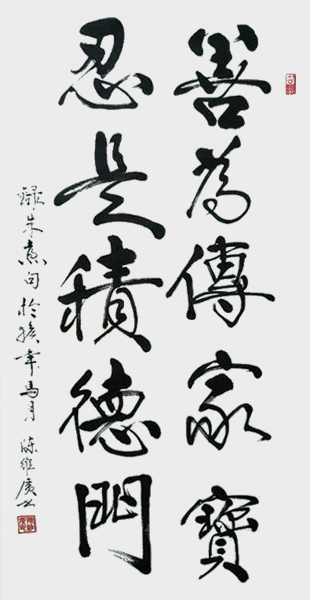 善為傳家寶
忍是積德門
錄朱熹句於猴年馬月 陳維廣書